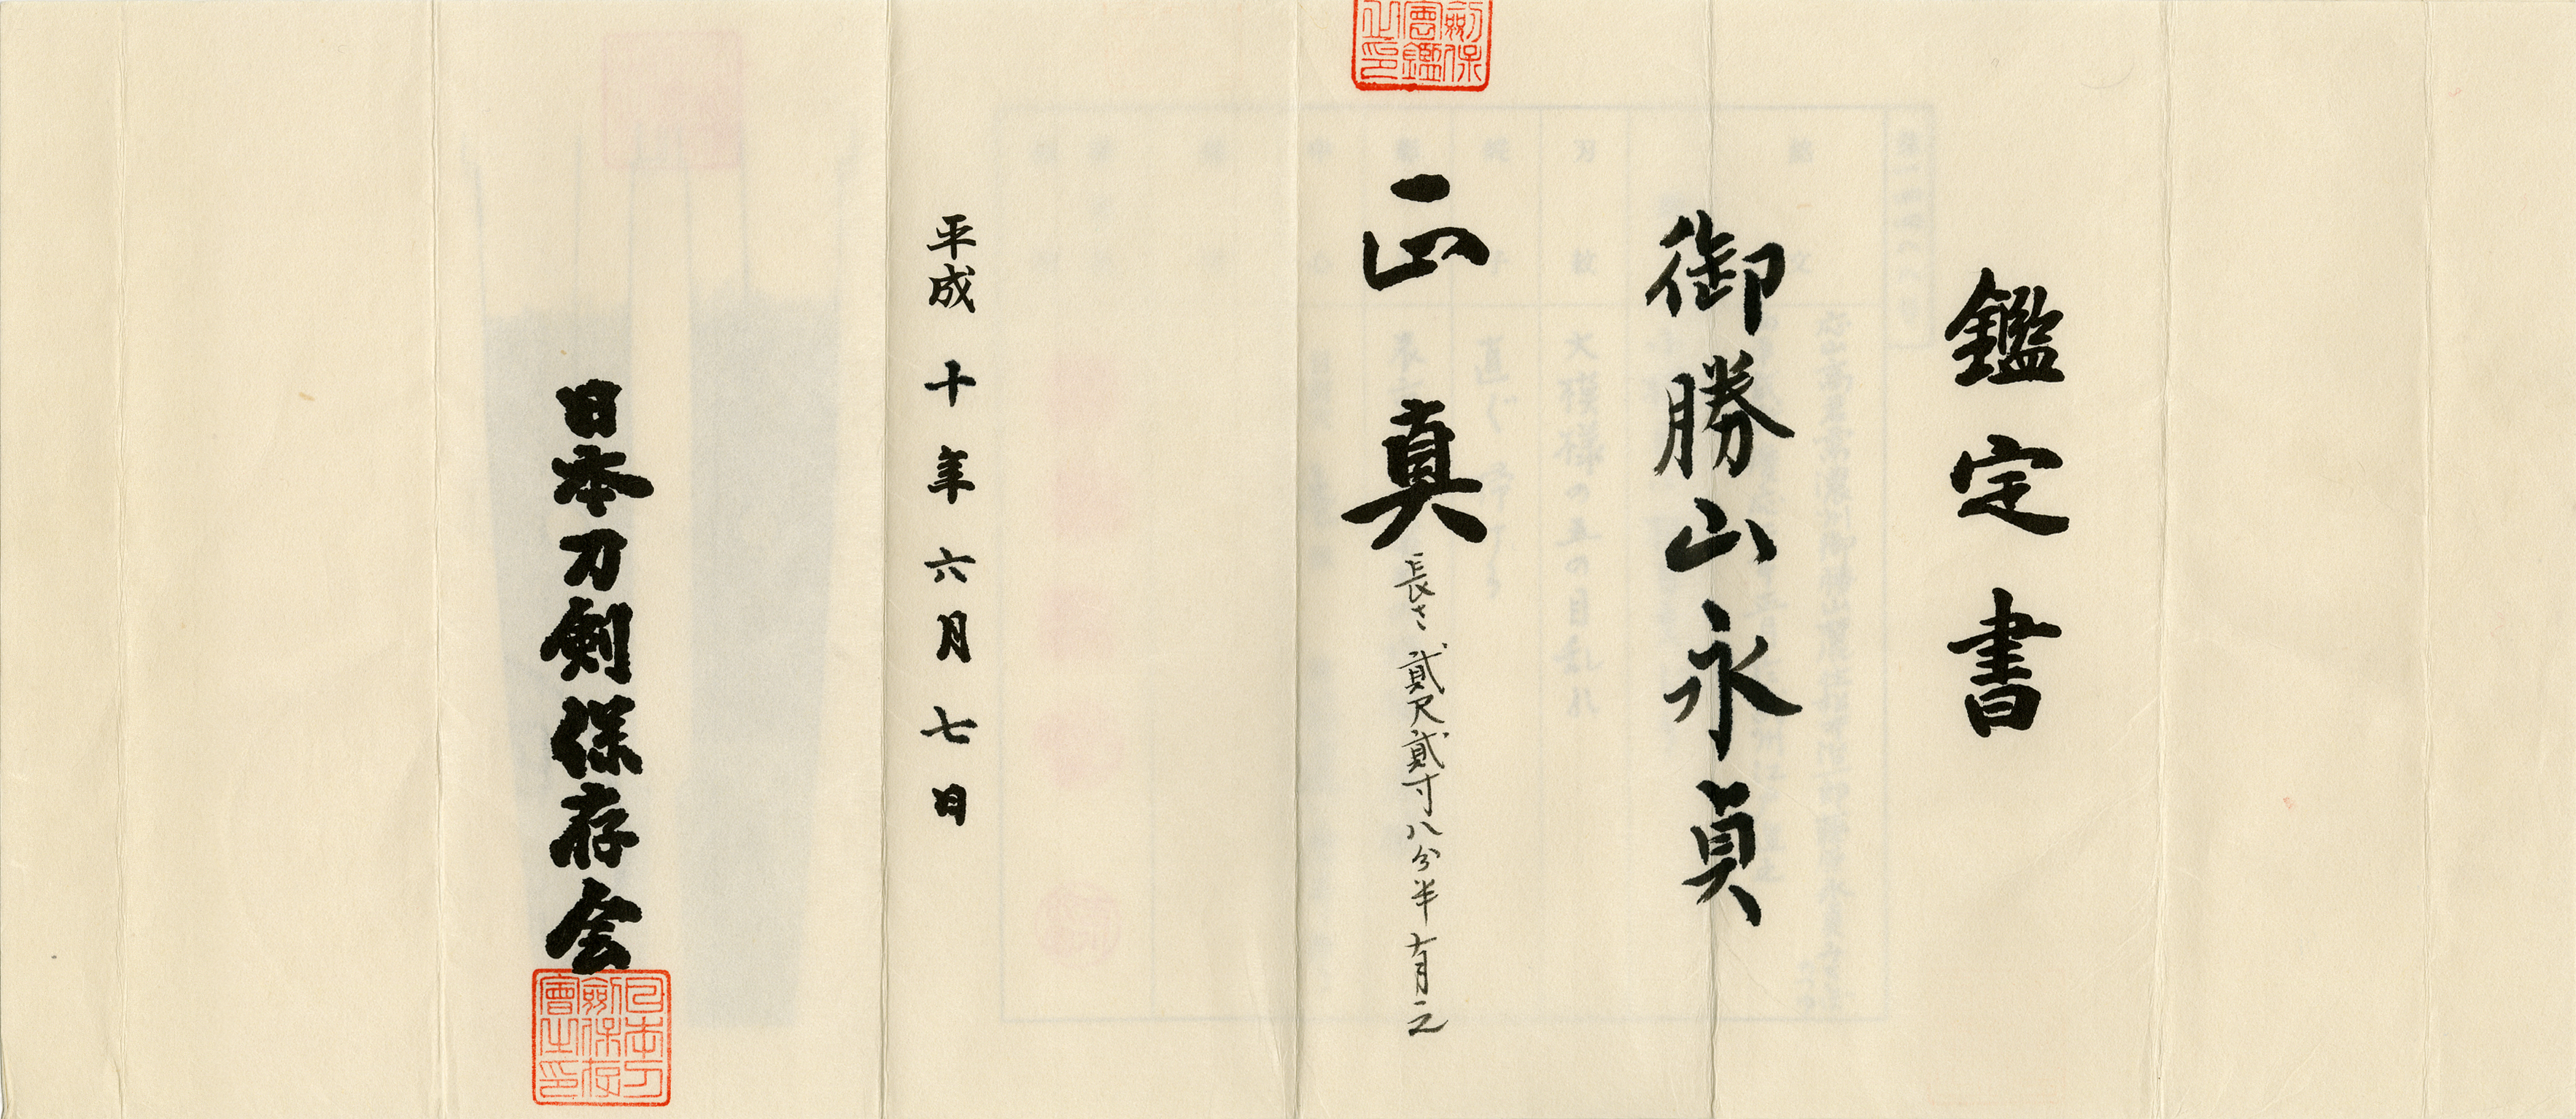 鑑定書
御勝山永貞
正真 長さ 貳尺貳寸八分半 有之
平成十年六月七日
日本刀剣保存会
日本刀剣保存會之印